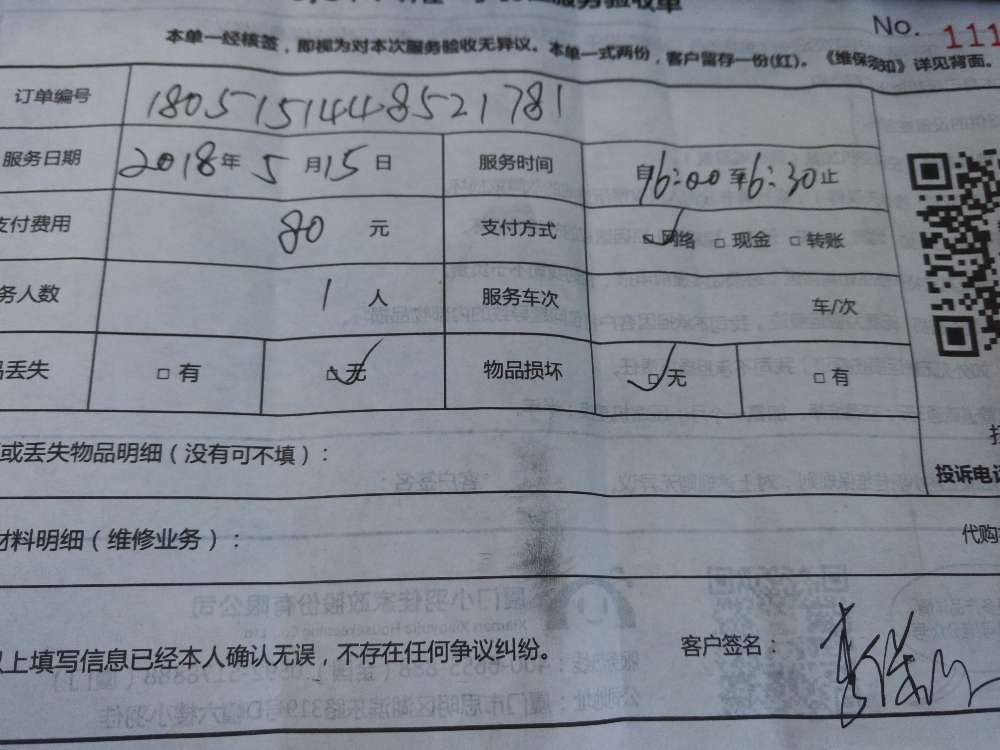 服务验收单
No. 111
本单一经核签，即视为对本次服务验收无异议。本单一式两份，客户留存一份(红)。《维保须知》详见背面。
订单编号 180515144 8521781
服务日期 2018年 5 月 15 日 服务时间 自 16:00 至 16:30 止
支付费用 80 元 支付方式 网络 现金 转账
务人数 1 人 服务车次 车/次
丢失 有 无 物品损坏 无 有
或丢失物品明细（没有可不填）：
投诉电话
材料明细（维修业务）： 代购
以上填写信息已经本人确认无误，不存在任何争议纠纷。 客户签名：